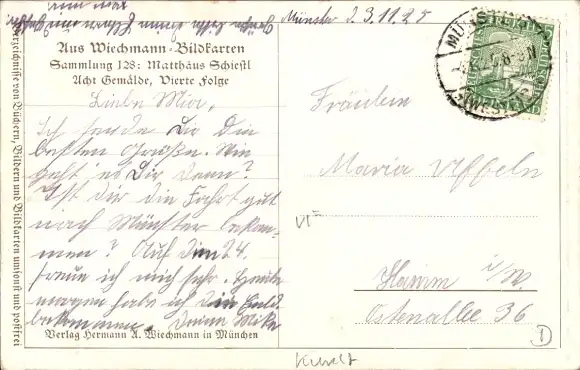 Münster d. 3.11.25
Grüße bitte Deine Eltern
von mir
Aus Wiechmann-Bildkarten
Sammlung 128: Matthäus Schiestl
Acht Gemälde, Vierte Folge
Liebe Mia,
Ich sende Dir die
besten Grüße. Wie
geht es Dir denn?
Ist dir die Fahrt gut
nach Münster bekom-
men? Auf den 24.
freue ich mich sehr. Heute
morgen habe ich
bekommen. Deine Mike
Verlag Hermann A. Wiechmann in München
Verzeichnisse von Büchern, Bildern und Bildkarten umsonst und postfrei
Fräulein
Maria Uffeln
Hamm i/W.
Ostenallee 36